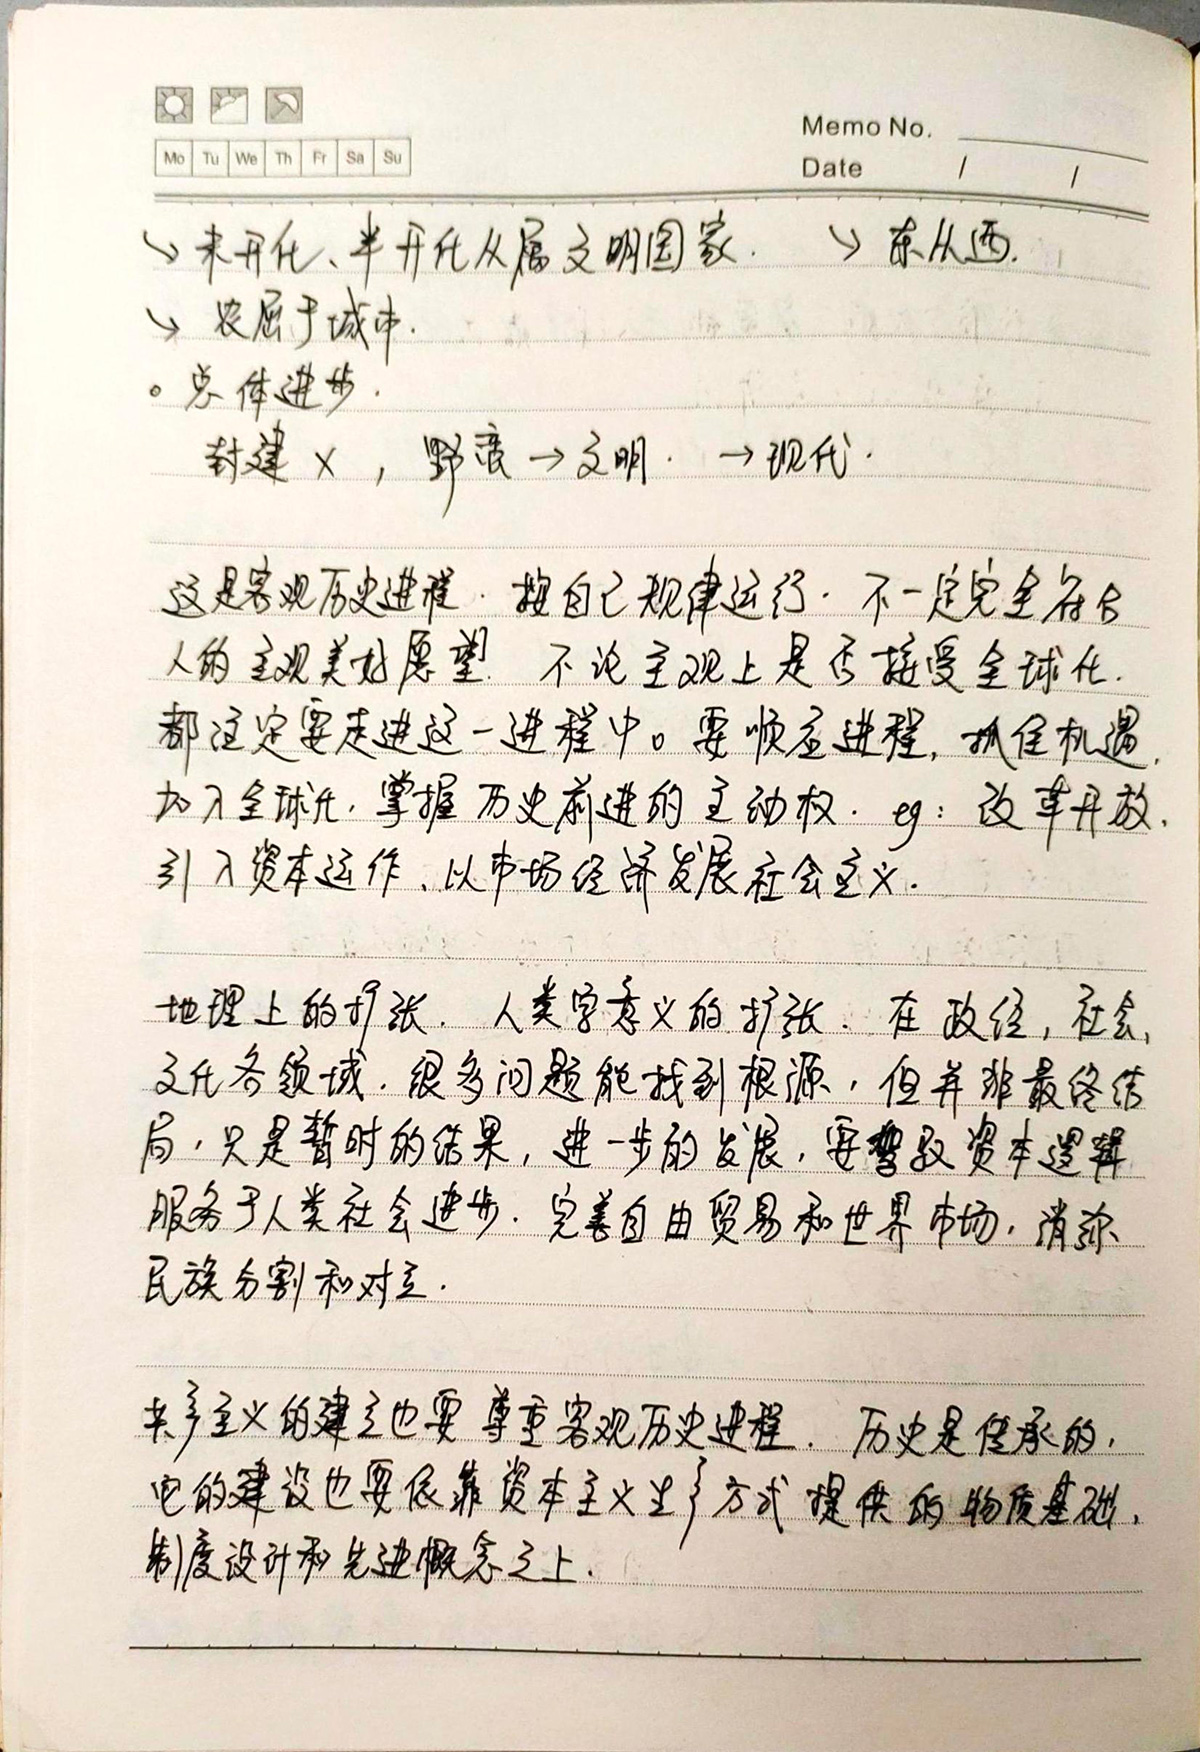 Memo No.
Mo Tu We Th Fr Sa Su
Date / /
↘ 未开化、半开化从属文明国家. ↘ 东从西.
↘ 农屈于城市.
。总体进步.
封建 × , 野蛮 → 文明. → 现代.
这是客观历史进程. 按自己规律运行. 不一定完全符合
人的主观美好愿望. 不论主观上是否接受全球化.
都注定要走进这一进程中。要顺应进程, 抓住机遇,
加入全球化, 掌握历史前进的主动权. eg: 改革开放,
引入资本运作、以市场经济发展社会主义.
地理上的扩张. 人类学意义的扩张. 在政经, 社会,
文化各领域. 很多问题能找到根源, 但并非最终结
局, 只是暂时的结果, 进一步的发展, 要驾驭资本逻辑
服务于人类社会进步. 完善自由贸易和世界市场, 消弥
民族分割和对立.
共产主义的建立也要尊重客观历史进程. 历史是传承的,
它的建设也要依靠资本主义生产方式提供的物质基础,
制度设计和先进概念之上.